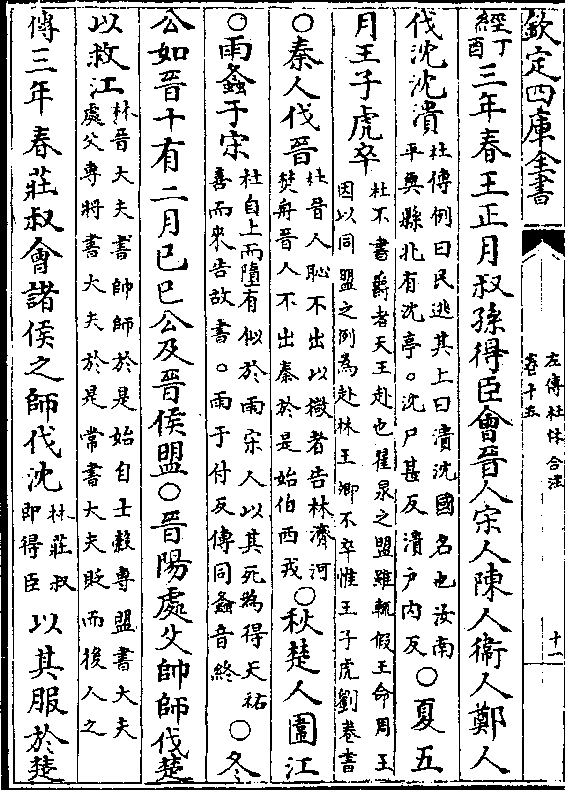 欽定四庫全書
左傳杜林合注
卷十五
十一
經丁酉三年春王正月叔孫得臣會晉人宋人陳人衛人鄭人
伐沈沈潰杜傳例曰民逃其上曰潰沈國名也汝南平輿縣北有沈亭。沈尸甚反潰户内反○夏五
月王子虎卒杜不書爵者天王赴也翟泉之盟雖輒假王命周王因以同盟之例為赴林王卿不卒惟王子虎劉卷書
○秦人伐晉杜晉人恥不出以微者告林濟河焚舟晉人不出秦於是始伯西戎○秋楚人圍江
○雨螽于宋杜自上而墮有似於雨宋人以其死為得天祐喜而來告故書。雨于付反傳同螽音終○冬
公如晉十有二月己巳公及晉侯盟○晉陽處父帥師伐楚
以救江林晉大夫書帥師於是始自士縠專盟書大夫處父專將書大夫於是常書大夫貶而後人之
傳三年春莊叔會諸侯之師伐沈林莊叔即得臣以其服於楚